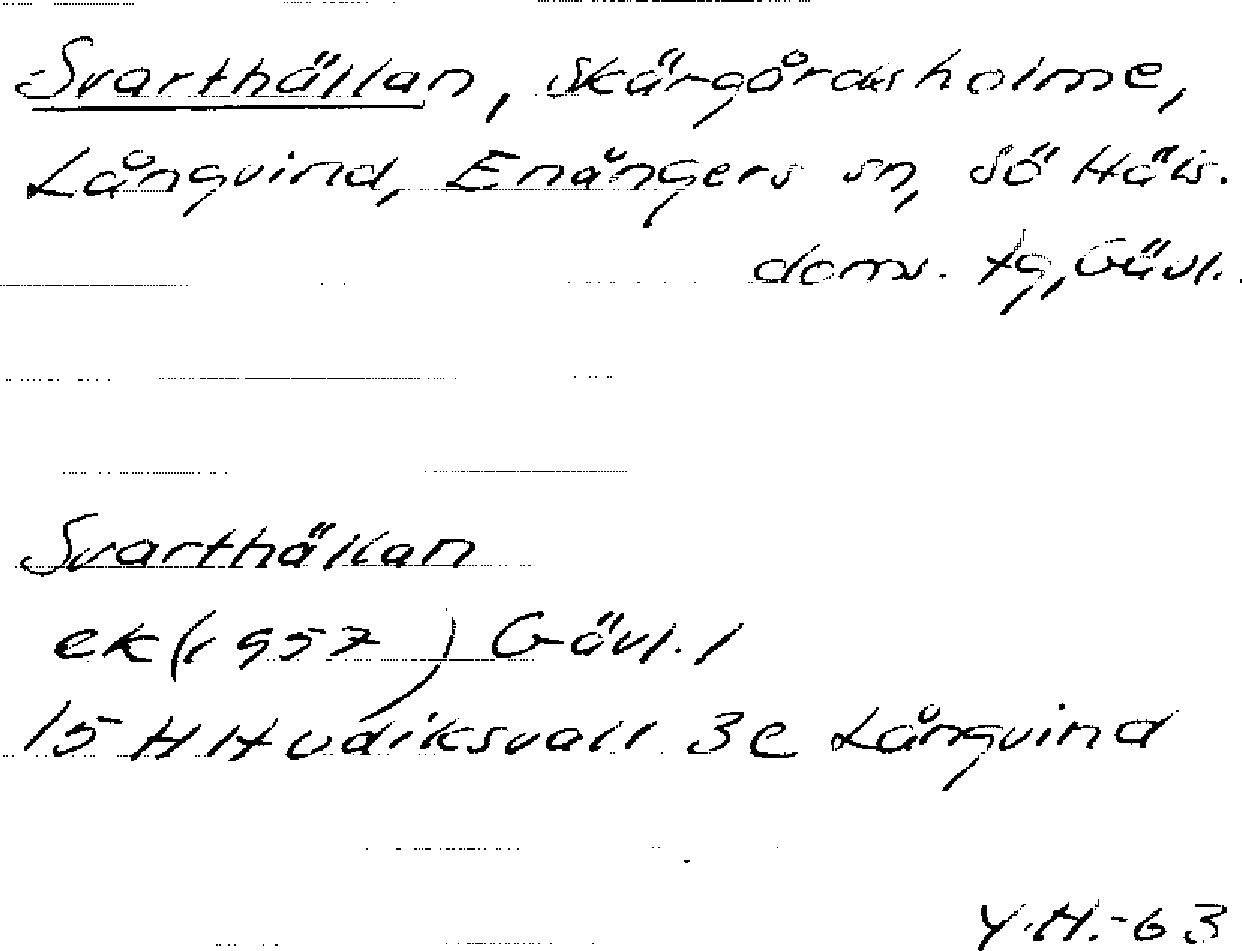 Svarthällan, Skärgårdsholme,
Långvind, Enångers sn, Sö Häls.
doms. tg, Gävl.
Svarthällan
ek (1957) Gävl. l
15 H Hudiksvall 3e Långvind
Y.H.-63